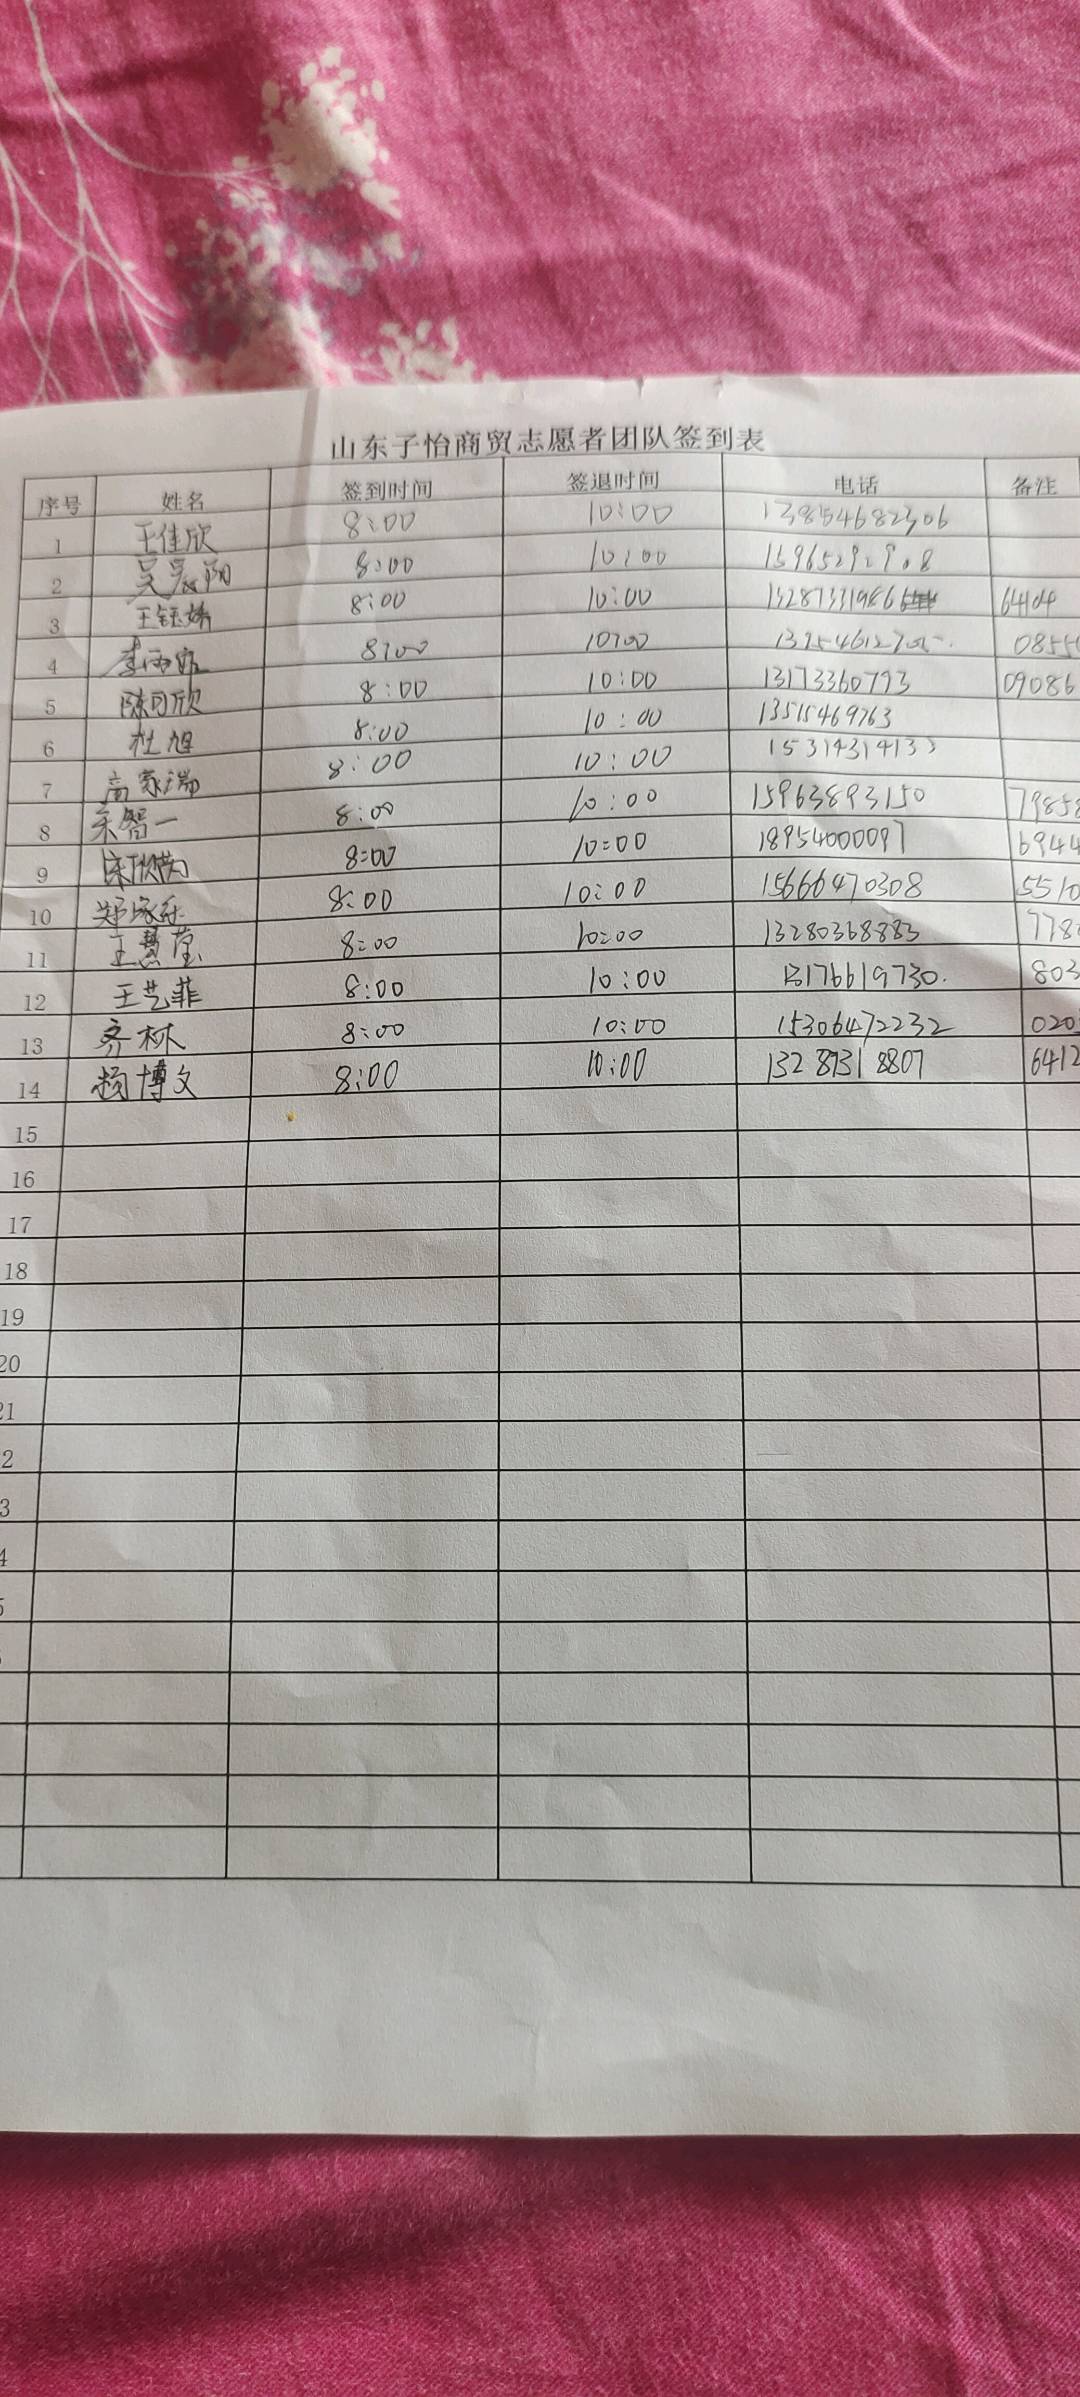 山东子怡商贸志愿者团队签到表
序号 姓名 签到时间 签退时间 电话 备注
1 王佳欣 8:00 10:00 13854682306
2 吴晨翔 8:00 10:00
3 王钰 8:00 10:00 15287331986 64104
4 李雨 8:00 10:00 0855
5 陈可欣 8:00 10:00 13173360793 09086
6 杜旭 8:00 10:00 13515469763
7 高家瑞 8:00 10:00 15314314133
8 宋智一 8:00 10:00 15963893150 7985
9 8:00 10:00 18954000097 6944
10 郑 8:00 10:00 15666470308 5510
11 王慧莹 8:00 10:00 13280368883 778
12 王艺菲 8:00 10:00 13176619730. 803
13 齐林 8:00 10:00 15306472232 020
14 杨博文 8:00 10:00 13287318807 6412
15
16
17
18
19
20
21
2
3
4
5